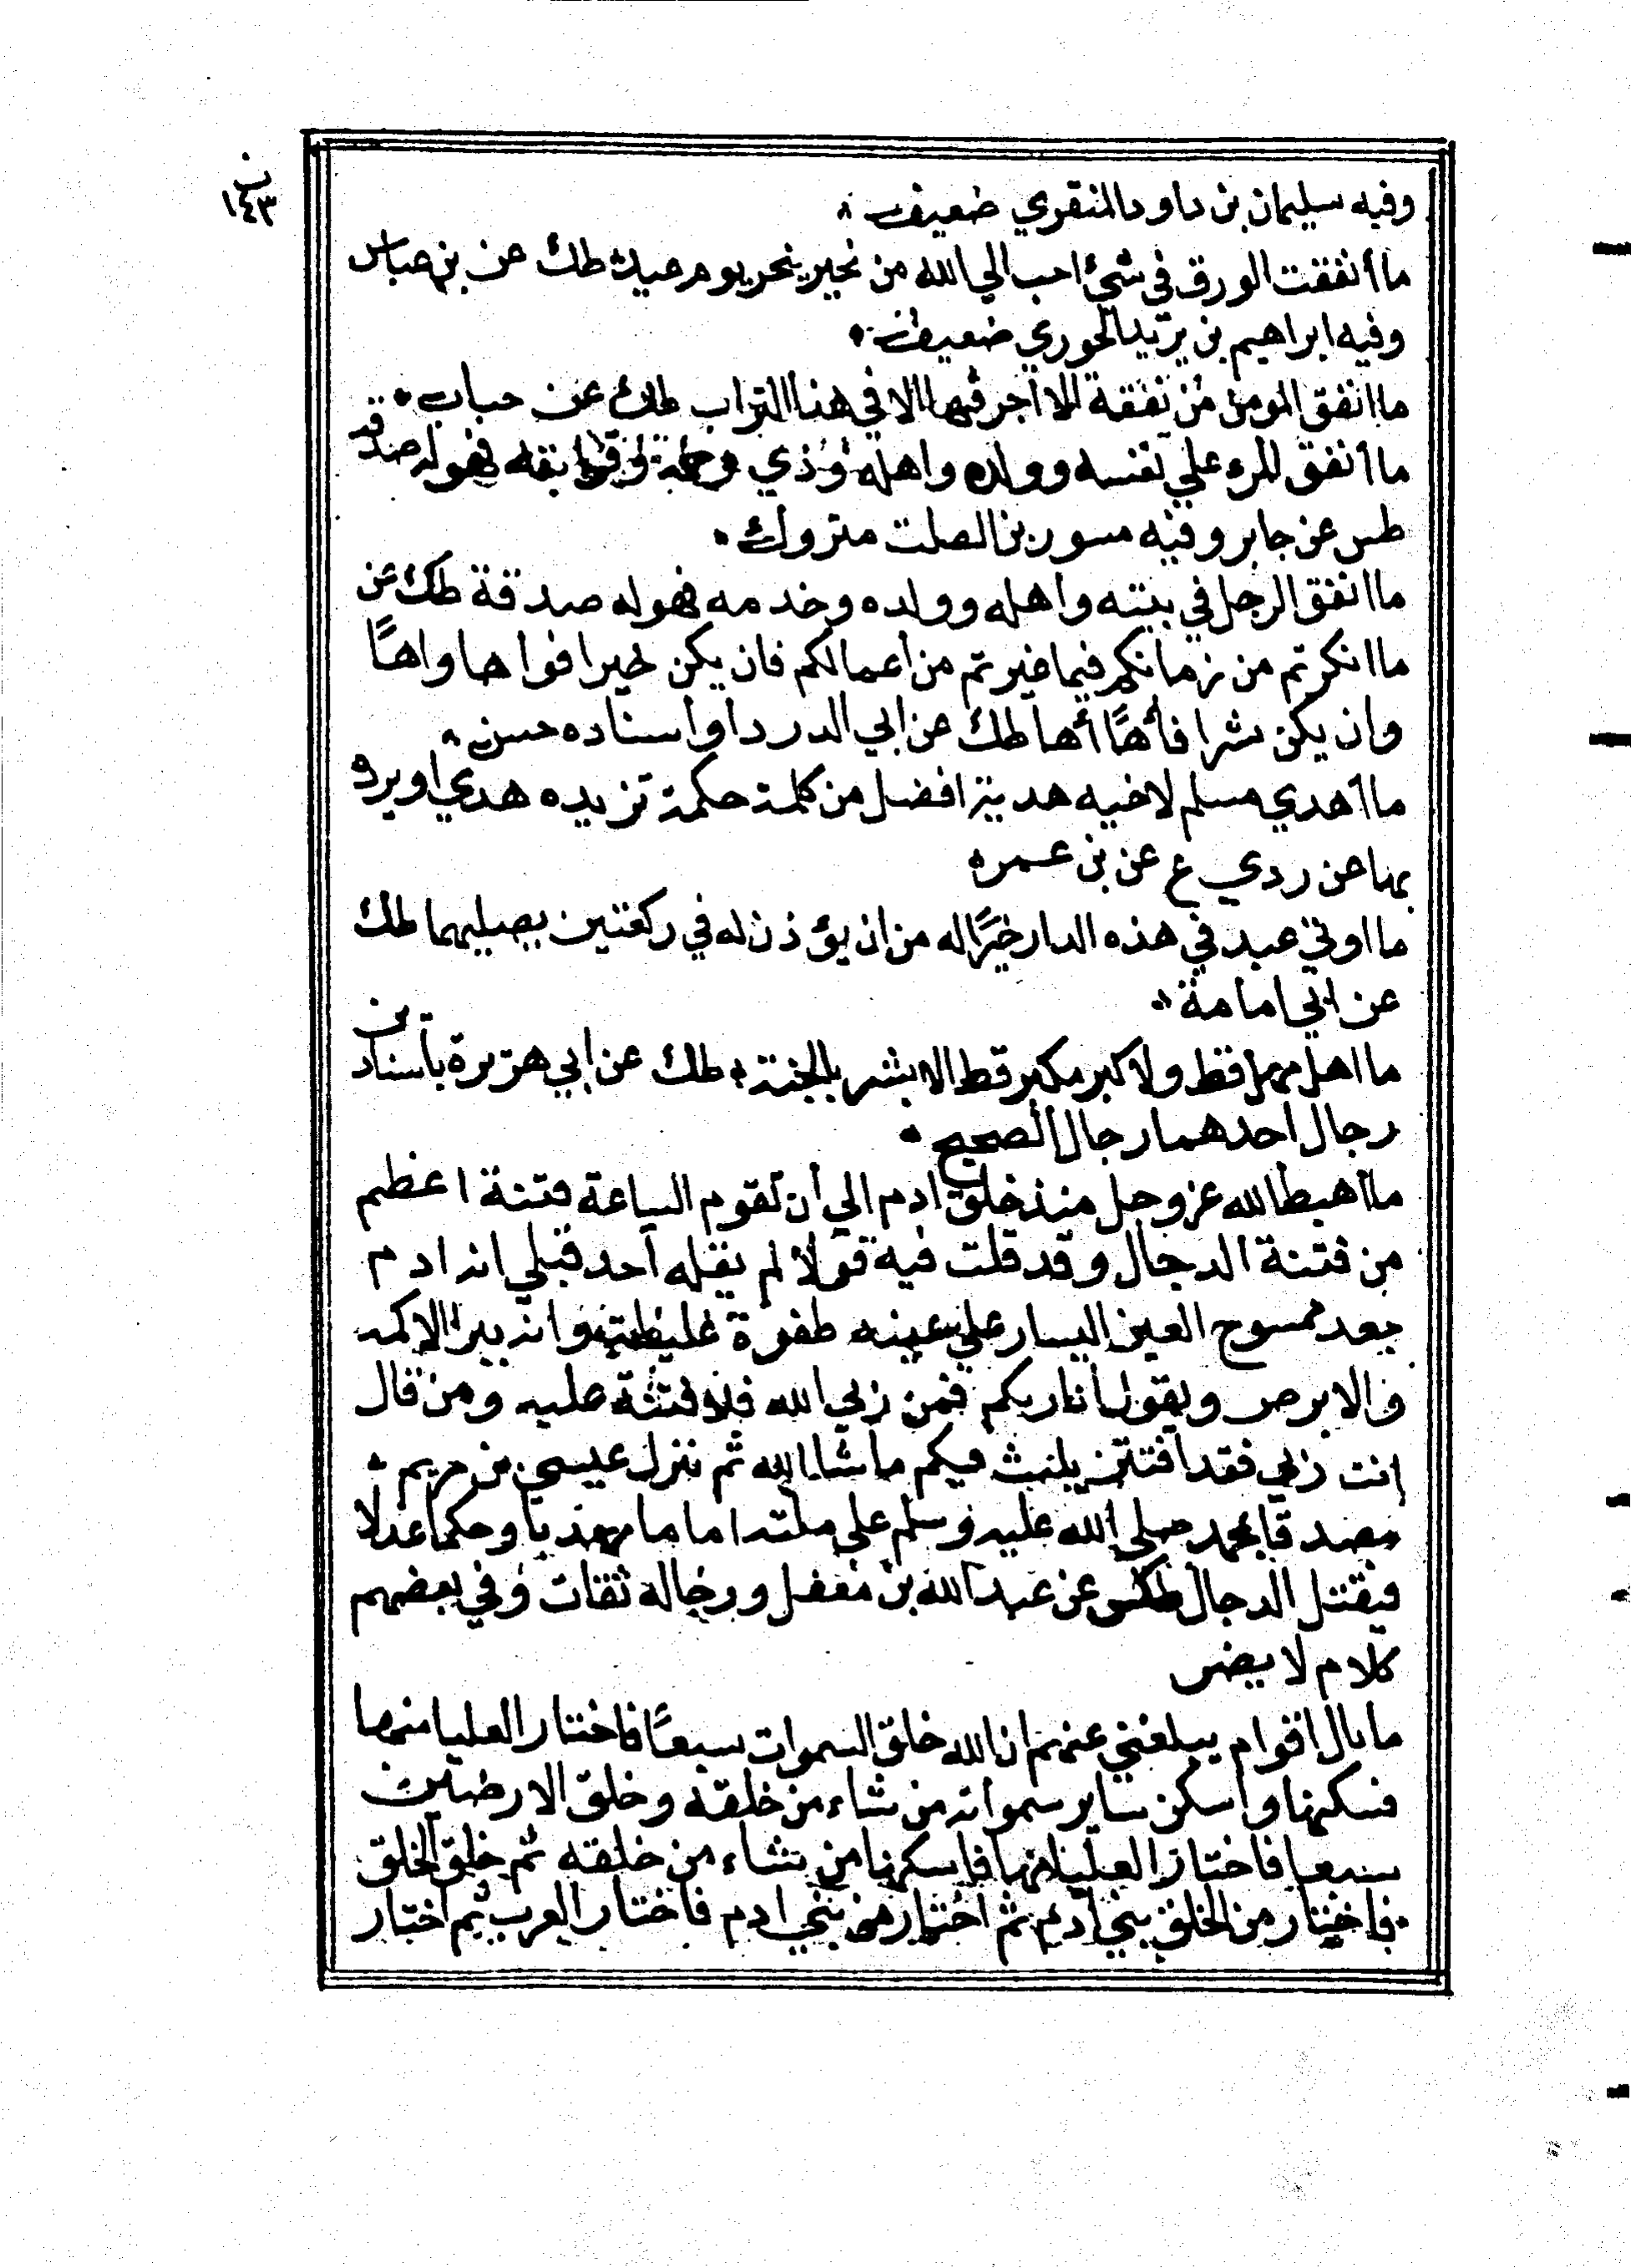 ب
١٤٣
وفيه سليمان بن داود المنقري ضعيف
ما أنفقت الورق في شئ احب الي الله من نحير ينحر يوم عيد طك عن بن عباس
وفيه ابراهيم بن يزيد الخوري ضعيف
ما انفق المومن من نفقة الا اجر فيها الا في هذا التراب طك عن حباب
ما أنفق المرء علي نفسه وولده واهله وذي رحمه وقرابته فهو له صدقه
طس عن جابر وفيه مسور بن الصلت متروك
ما انفق الرجل في بيته واهله وولده وخدمه فهو له صدقة طك عن
ما انكرتم من زمانكم فيما غيرتم من أعمالكم فان يكن خيرا فواها واهًا
وان يكن شرا فأهًا أها طك عن ابي الدرداو أسناده حسن
ما أهدي مسلم لاخيه هدية افضل من كلمة حكمة تزيده هدي او يرده
بها عن ردي ع عن بن عمره
ما اوتي عبد في هذه الدار خيرًا له من ان يؤذن له في ركعتين يصليهما طك
عن ابي امامة
ما اهل مهل قط ولا كبر مكبر قط الا بشر بالجنة طك عن ابي هريرة بأسنادين
رجال احدهما رجال الصحيح
ما أهبط الله عز وجل منذ خلق ادم الي أن تقوم الساعة فتنة اعظم
من فتنة الدجال وقد قلت فيه قولا لم يقله أحد قبلي انه ادم
جعد ممسوح العين اليسار علي عينه ظفرة غليظة وانه يبرأ الاكمه
والابرص ويقول أنا ربكم فمن ربي الله فلا فتنة عليه ومن قال
انت ربي فقد افتتن يلبث فيكم ما شاالله ثم ينزل عيسي بن مريم
مصدقا بمحمد صلي الله عليه وسلم علي ملته اماما مهديا وحكما عدلا
فيقتل الدجال طكس عن عبد الله بن مغفل ورجاله ثقات وفي بعضهم
كلام لا يضر
ما بال اقوام يبلغني عنهم ان الله خلق السموات سبعًا فاختار العليا منها
فسكنها واسكن ساير سمواته من شاء من خلقه وخلق الارضين
سبعا فاختار العليا منها فاسكنها من شاء من خلقه ثم خلق الخلق
فاختار من الخلق بني أدم ثم اختار من بني ادم فاختار العرب ثم اختار